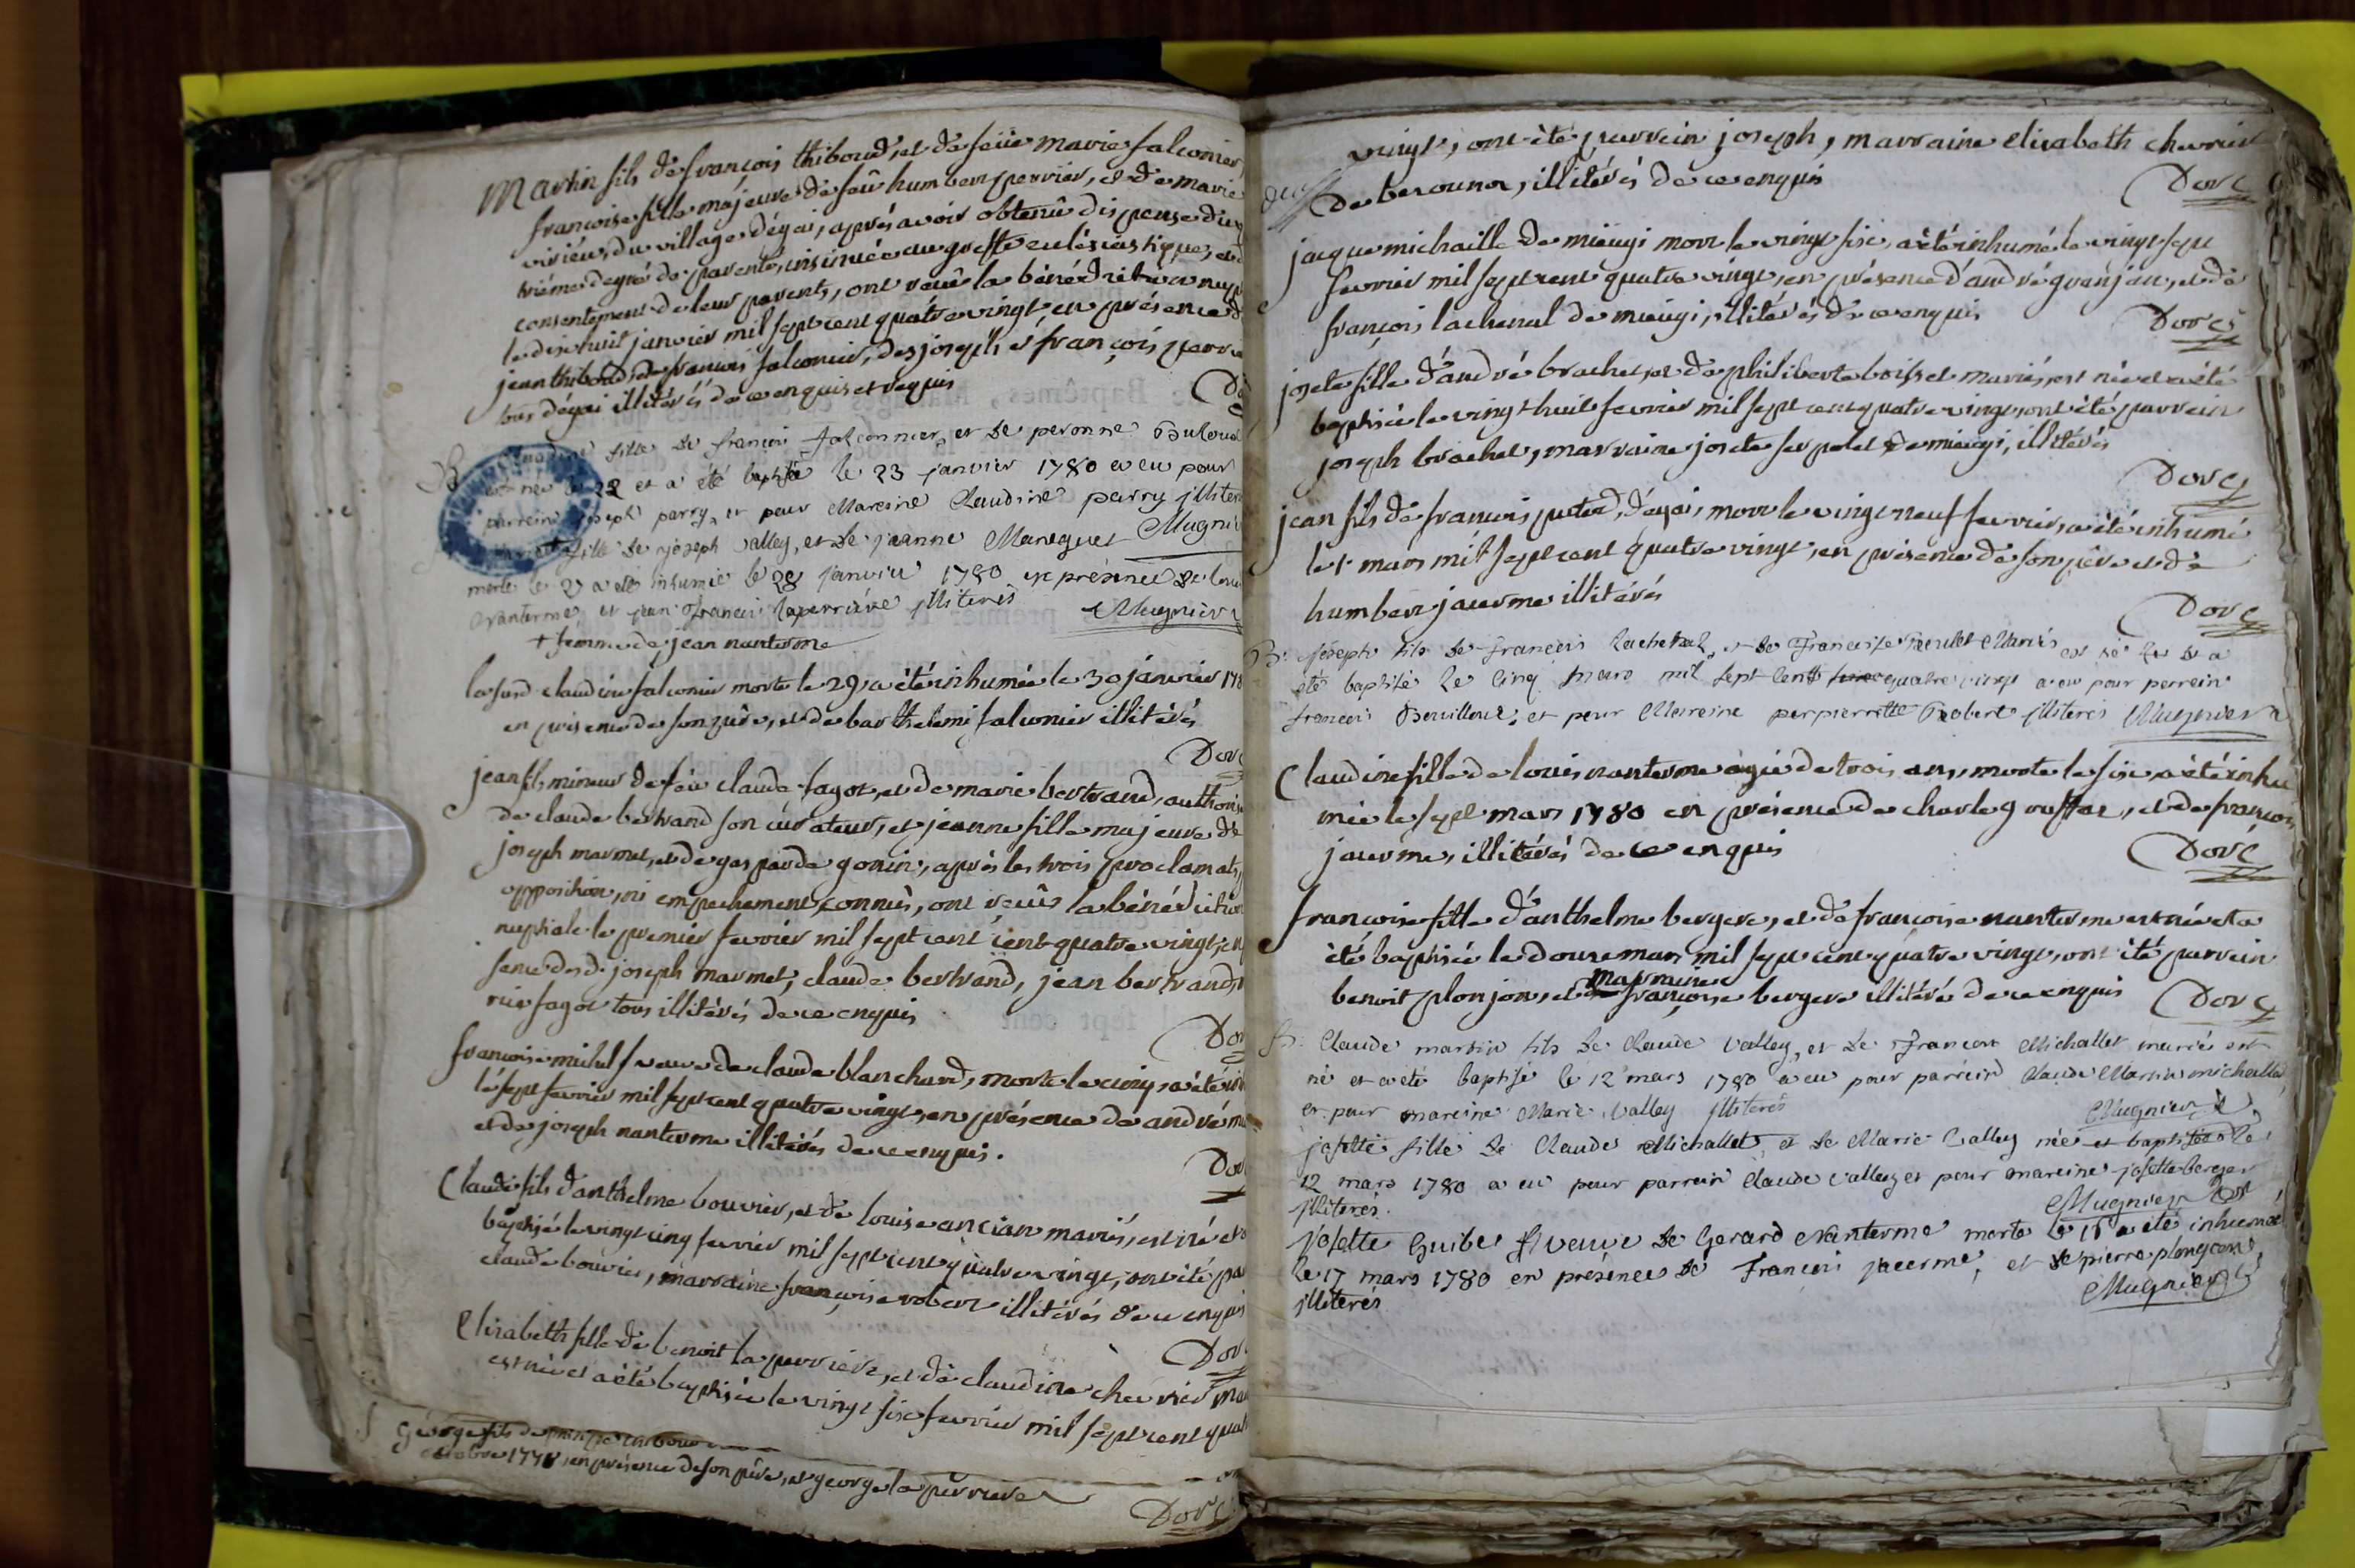 Martin fils de françois thiboud, et de feüe marie falconier,
françoise fille majeure de feû humbert perrier, et de marie
virieu, du village d'égai, aprés avoir obtenû dispense du
triéme degré de parenté, insinuée au greffe eclésiastique, et
consentement de leur parents, ont reçû la bénédiction nup
le dixhuit janvier mil sept cent quatre vingt, en présence d
jean thiboud, de francois falconier, des joseph et françois perri
tous d'égai illitérés de ce enquis et requis
fille de francois falconnier, et de peronne
née le 22 et a été baptisée le 23 janvier 1780 a eu pour
parrein joseph parry, et pour Mareine Claudine parry jlliter
+ fille de joseph valley, et de jeanne Mareguet Mugni
morte le 27 a été inhumée le 28 janvier 1780 en présence de
Nanterme, et jean francois laperriere jlliterés Mugnier
+ femme de jean nanterme
claudine falconier morte le 29, a été inhumée le 30 janvier 178
en présence de son père, et de barthelemi falconier illitérés
Dorc
jean fils mineur de feu claude fagot, et de marie bertrand, authoris
de claude bertrand son curateur, et jeanne fille majeure de
joseph marmet, et de gasparde gonin, aprés les trois proclamats,
opposition, ni empechement connus, ont reçûs la bénédiction
nuptiale le premier fevrier mil sept cent cent quatre vingt, en
sence de joseph marmet, claude bertrand, jean bertrand,
fagot tous illitérés de ce enquis
Dor
françoise veuve de claude blanchard, morte le cinq, a été in
le sept fevrier mil sept cent quatre vingt, en présence de andré m
et de joseph nanterme illitérés de ce enquis.
Dor
Claude fils d'anthelme bouvier, et de louise ancian mariés, est né et a
baptisé le vingt cinq fevrier mil sept cent quatre vingt, ont été pa
claude bouvier, marraine françoise robert illitérés de ce enquis
Dorc
Elisabeth fille de benoit la perriere, et de claudine chevrier ma
est née et a été baptisée le vingt six fevrier mil sept cent quat
George fils de
octobre 1778, en présence de son père, et george la perriere
Dorc
vingt, ont été parrein joseph, marraine elisabeth chevrier
de , illitérés de ce enquis
Dorc
jacque michaille de mieugi mort le vingt six, a été inhumé le vingt sept
fevrier mil sept cent quatre vingt, en présence d'andré granjan, et de
françois lachenal de mieugi, illitérés de ce enquis
Dorc
josete fille d'andré brachet, et de philiberte boisset mariés, est née et a été
baptisée le vingt huit fevrier mil sept cent quatre vingt, ont été parrein
joseph brachet, marraine josete de mieugi, illitérés
Dorc
jean fils de francois d'égai, mort le vingt neuf fevrier, a été inhumé
le 1 mars mil sept cent quatre vingt, en présence de son père et de
humbert jacerme illitérés
Dorc
B. joseph fils de francois lachenal, et de Francoise Mariés est né et a
été baptisé le cinq mars mil sept cent quatre vingt a eu pour perrein
francois Bouilloud, et pour Marreine perpierrette Robert jlliterés Mugnier
Claudine fille de louis nanterme agée de trois ans, morte le six a été inhu
mée le sept mars 1780 en présence de charle gruffat, et de françois
jacerme, illitérés de ce enquis
Dorc
françoise fille d'anthelme berger, et de françoise nanterme est née et a
été baptisée le douze mars mil sept cent quatre vingt, ont été parrein
benoit plonjon, et marraine françoise berger illitérés de ce enquis Dorc
B. Claude martin fils de Claude valley, et de Francoise Michallet mariés est
né et a été baptisé le 12 mars 1780 a eu pour parrein Claude Martin michallet,
et pour mareine Marie valley jlliterés Mugnier
josette fille de Claude Michallet, et de Marie valley née et baptisée le
12 mars 1780 a eu pour parrein Claude valley et pour mareine josette berger
jlliterés. Mugnier
josette Guibet veuve de Gerard Nanterme morte le 16 a été inhumée
le 17 mars 1780 en présence de Francois jacerme, et de pierre plongeon
jlliterés Mugnier